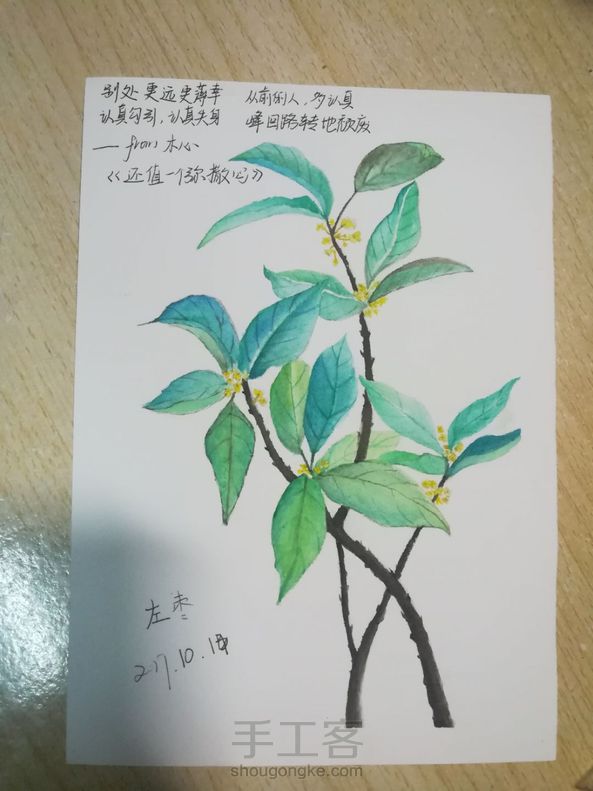 别处 更远更薄幸
认真勾引，认真失身
从前的人，多认真
峰回路转地颓废
— from 木心
《还值一个弥撒吗》
左枣
手工客
shougongke.com